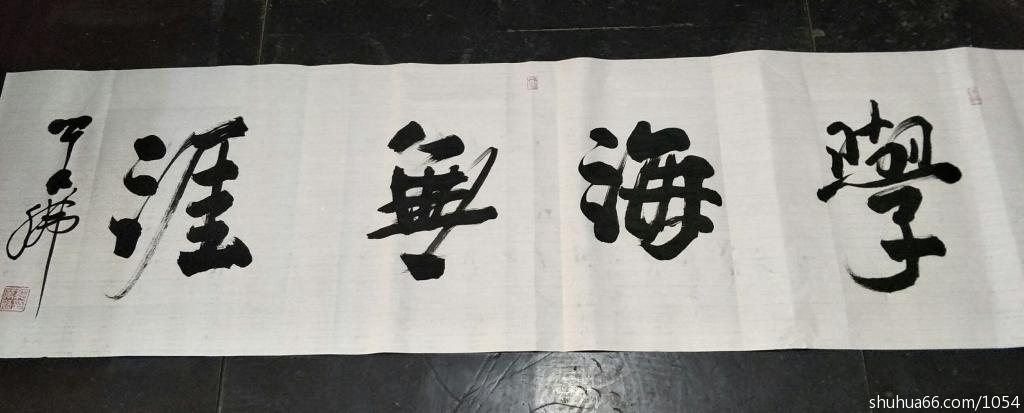 學海無涯
shuhua66.com/1054